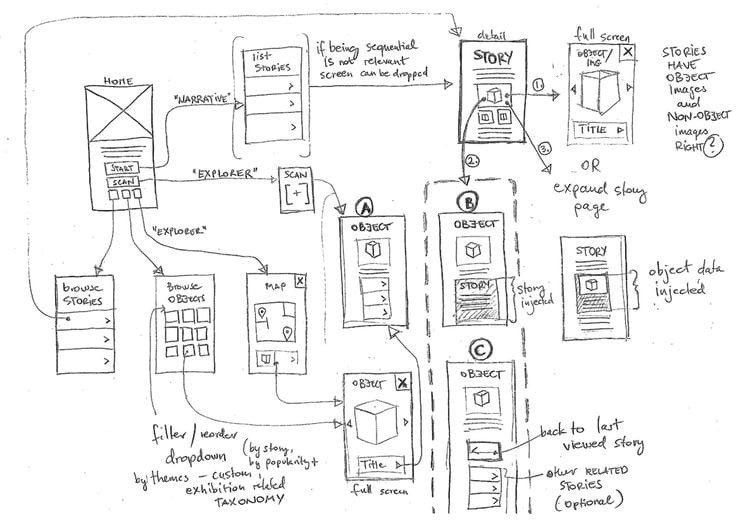 HOME
START
SCAN
"NARRATIVE"
"EXPLORER"
"EXPLORER"
list
STORIES
if being sequential
is not relevant
screen can be dropped
detail
STORY
1.
2.
3.
full screen
OBJECT/
IMG
X
TITLE
STORIES
HAVE
OBJECT
images
and
NON-OBJECT
images
RIGHT?
OR
expand story
page
SCAN
[+]
A
OBJECT
B
OBJECT
STORY
story
injected
STORY
object data
injected
browse
STORIES
BROWSE
OBJECTS
MAP
X
filter/reorder
dropdown
(by story,
by popularity +
by themes - custom,
exhibition related
TAXONOMY
OBJECT
X
Title
full screen
C
OBJECT
back to last
viewed story
other RELATED
STORIES
(optional)